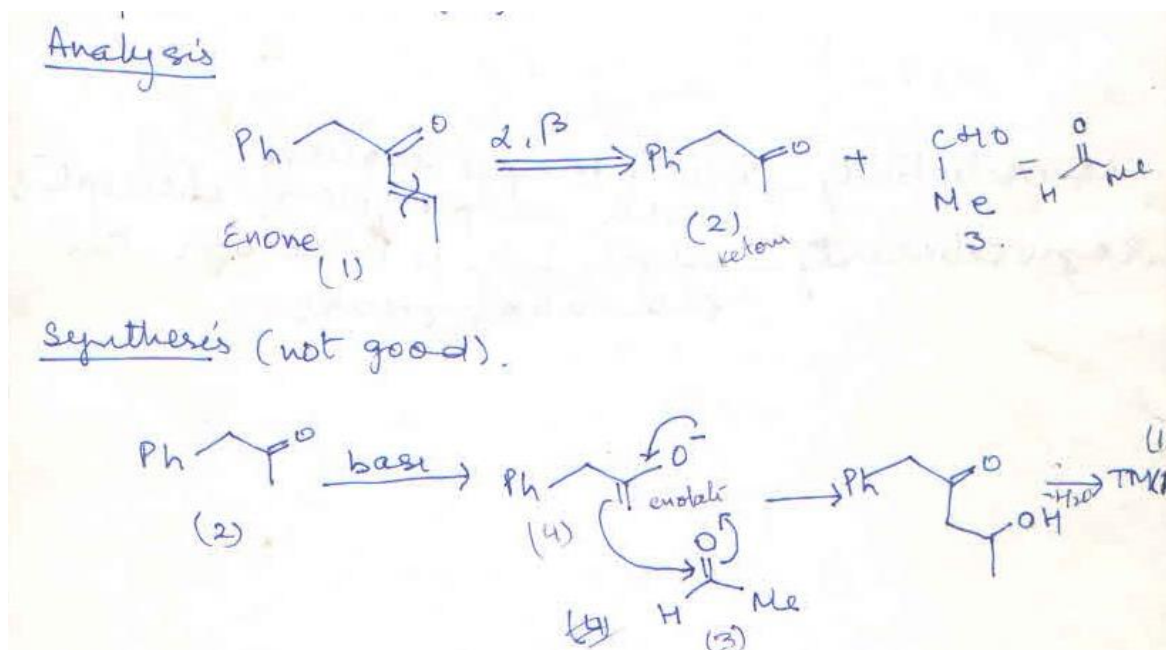 Analysis
Ph O α, β Ph O + CHO = O
Me H Me
Enone (2) 3.
(1)
Synthesis (not good).
Ph O base Ph O⁻ enolate Ph O OH -H₂O
(2) (4) O
H Me
(3)